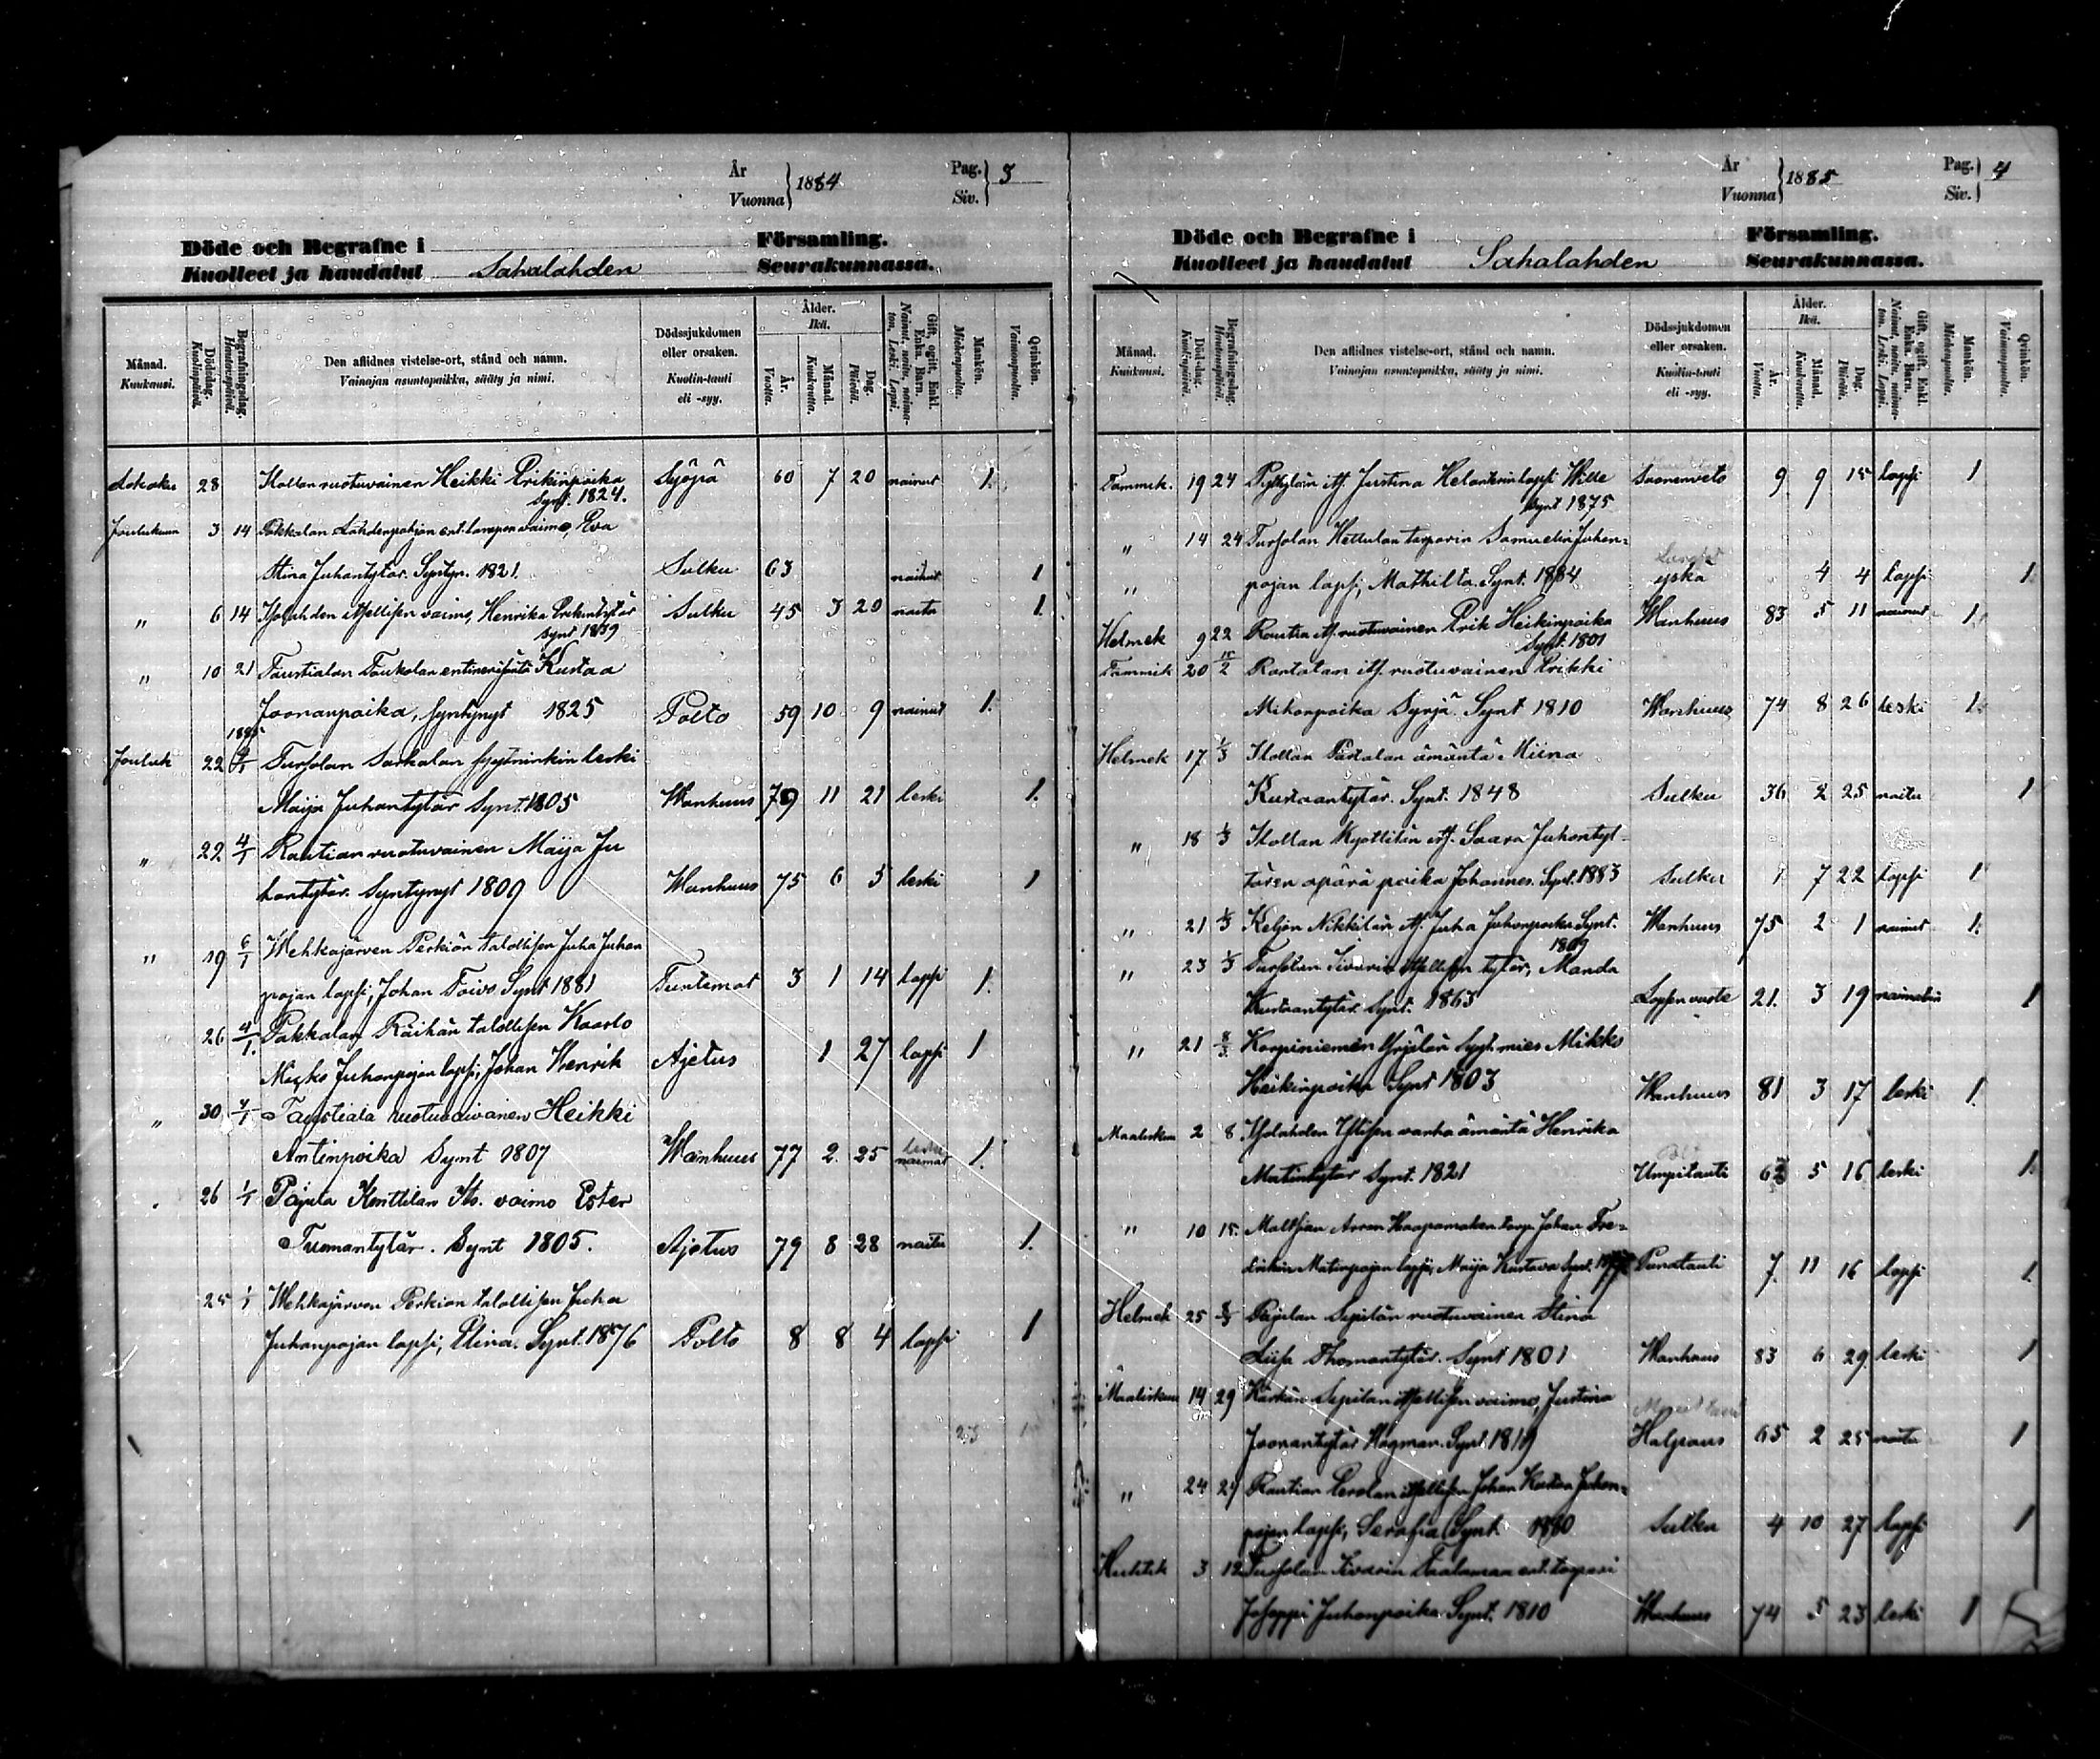 År
Vuonna 1884
Pag.
Siv. 3
Döde och Begrafne i Församling.
Kuolleet ja haudatut Sahalahden Seurakunnassa.
Månad.
Kuukausi.
Dödsdag.
Kuolinpäivä.
Begrafningsdag.
Hautauspäivä.
Den aflidnes vistelse-ort, stånd och namn.
Vainajan asuntopaikka, sääty ja nimi.
Dödssjukdomen
eller orsaken.
Kuolin-tauti
eli -syy.
Ålder.
Ikä.
År.
Vuotta.
Månad.
Kuukautta.
Dag.
Päivää.
Gift, ogift, Enkl.
Enka. Barn.
Nainut, naitu, naima-
ton, Leski. Lapsi.
Mankön.
Miehenpuolta.
Qvinkön.
Vaimonpuolta.
Lokaku 28 Isollan ruotuvainen Heikki Erikinpoika Syöpä 60 7 20 nainut 1.
Synt. 1824.
Joulukuun 3 14 Pakkalan Lahdenpohjan ent. lampuri vaimo, Eva
Stina Juhantytär. Syntyn. 1821. Sulku 63 1
" 6 14 itsellisen vaimo, Henrika Erkintytär Sulku 45 3 20 naitu 1.
Synt 1839
" 10 21 Taustialan Toukolan entinen isäntä Kustaa
Joonanpoika, syntynyt 1825 Polto 59 10 9 nainut 1.
1885
Jouluk 22 4/1 Tursolan Sarkalan syytninkin leski
Maija Juhantytär Synt. 1805 Wanhuus 79 11 21 leski 1.
" 22 4/1 Rautian ruotuvainen Maija Ju
hantytär. Syntynyt 1809 Wanhuus 75 6 5 leski 1
" 19 6/1 Wehkajärven Perkiön talollisen Juha Juhan
pojan lapsi, Johan Toivo Synt 1881 Tuntemat 3 1 14 lapsi 1.
26 4/1. Pakkalan Räihän talollisen Kaarlo
Juhanpojan lapsi, Johan Henrik Ajetus 1 27 lapsi 1
" 30 4/1 Taustiala ruotuvaivanen Heikki
Antinpoika Synt 1807 Wanhuus 77 2. 25 leski 1.
26 1/1 Pajula Konttilan Its. vaimo Ester
Tuomantytär. Synt 1805. Ajetus 79 8 28 naitu 1.
25 1/1 Wehkajärven Perkion talollisen Juha
Juhanpojan lapsi, Elina. Synt. 1876 Polto 8 8 4 lapsi 1
År
Vuonna 1885
Pag.
Siv. 4
Döde och Begrafne i Församling.
Kuolleet ja haudatut Sahalahden Seurakunnassa.
Månad.
Kuukausi.
Dödsdag.
Kuolinpäivä.
Begrafningsdag.
Hautauspäivä.
Den aflidnes vistelse-ort, stånd och namn.
Vainajan asuntopaikka, sääty ja nimi.
Dödssjukdomen
eller orsaken.
Kuolin-tauti
eli -syy.
Ålder.
Ikä.
År.
Vuotta.
Månad.
Kuukautta.
Dag.
Päivää.
Gift, ogift, Enkl.
Enka. Barn.
Nainut, naitu, naima-
ton, Leski. Lapsi.
Mankön.
Miehenpuolta.
Qvinkön.
Vaimonpuolta.
Tammik. 19 24 its. Justina lapsi Wille Suonenveto 9 9 15 lapsi 1
Synt 1875
" 14 24 Tursolan Hellulan torparin Samuelin Juhan-
" pojan lapsi, Mathilta. Synt. 1884 yskä 4 4 lapsi 1.
Helmek 9 22 Rautia its. ruotuvainen Erik Heikinpoika Wanhuus 83 5 11 nainut 1.
Synt. 1801
Tammik 20 15/2 Rantatan its. ruotuvainen Erikki
Mikonpoika Syrjä. Synt 1810 Wanhuus 74 8 26 leski 1.
Helmek 17 1/3 Isollan emäntä Miina
Kustaantytär. Synt. 1848 Sulku 36 2 25 naitu 1
" 18 1/3 Isollan its. Saara Juhantyt-
tären äpärä poika Johannes. Synt. 1883 Sulku 1 7 22 lapsi 1
" 21 1/3 Keljon Nikkilän its. Juha Juhonpoika Synt. Wanhuus 75 2 1 nainut 1.
1809
" 23 1/3 Tursolan Iivarin itsellisen tytär, Manda
Kustaantytär. Synt. 1863 Lapsen vuote 21. 3 19 naimatoin 1
" 21 8/3 Korpiniemen Yrjölän syyt. mies Mikko
Heikinpoika Synt 1803 Wanhuus 81 3 17 leski 1.
Maaliskuu 2 8 vanha emäntä Henrika
Matintytär Synt. 1821 Umpitauti 5 16 leski 1.
" 10 15. Haapamäen torp. Johan Fre-
drikin Matinpojan lapsi, Maija Kustava Synt. Punatauti 7 11 16 lapsi 1.
Helmek 25 8/3 Pajulan Sepilän ruotuvainen Stina
Liisa Thomantytär. Synt 1801 Wanhuus 83 6 29 leski 1
Maaliskuu 14 29 Sepilan itsellisen vaimo, Justina
Joonantytär Hagman. Synt. 1819 Halpaus 65 2 25 naitu 1
" 24 29 Rautian Eerolan itsellisen Johan Kustaa Juhan-
pojan lapsi, Serafia Synt 1880 Sulku 4 10 27 lapsi 1
Huhtik 3 12 Tursolan Iivarin Taalamaa ent. torpari
Joseppi Juhanpoika Synt. 1810 Wanhuus 74 5 23 leski 1